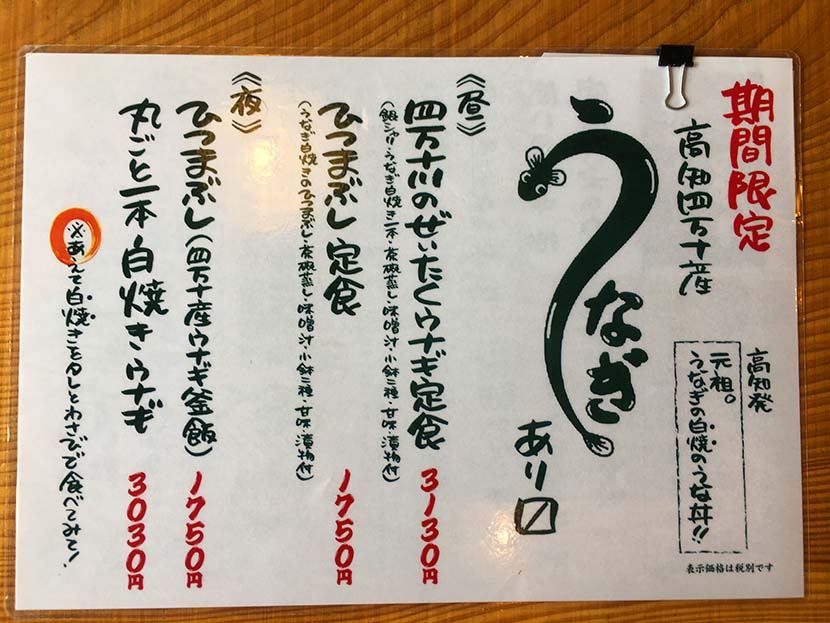 期間限定
高知四万十産
うなぎ
あり〼
高知発
元祖。
うなぎの白焼のうな丼!!
《昼》
四万十川のぜいたくウナギ定食 3130円
(銀シャリ・うなぎ白焼き一本・茶碗蒸し・味噌汁・小鉢二種・甘味・漬物付)
ひつまぶし定食 1750円
(うなぎ白焼きのひつまぶし・茶碗蒸し・味噌汁・小鉢二種・甘味・漬物付)
《夜》
ひつまぶし(四万十産ウナギ釜飯) 1750円
丸ごと一本白焼きウナギ 3030円
※あえて白焼きをタレとわさびで食べてみて!
表示価格は税別です